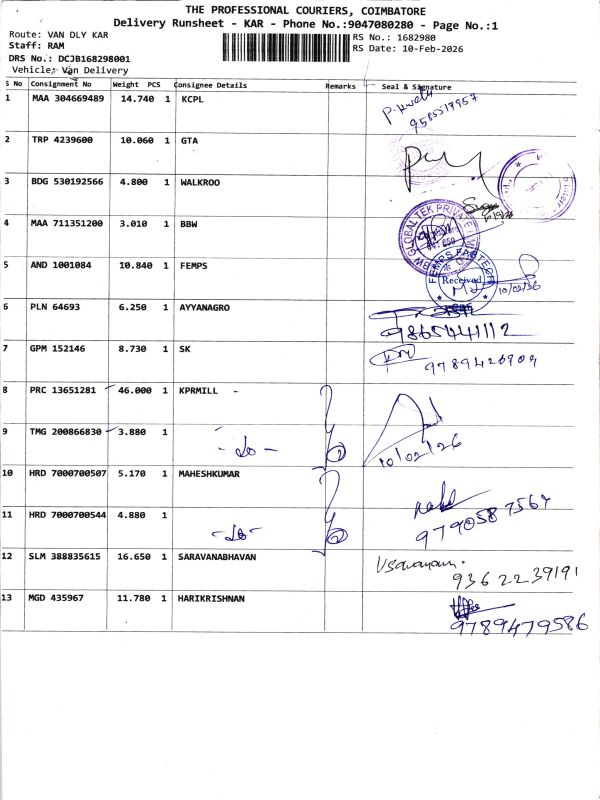 THE PROFESSIONAL COURIERS, COIMBATORE
Delivery Runsheet - KAR - Phone No.:9047080280 - Page No.:1
Route: VAN DLY KAR
Staff: RAM
DRS No.: DCJB168298001
Vehicle: Van Delivery
RS No.: 1682980
RS Date: 10-Feb-2026
S No Consignment No Weight PCS Consignee Details Remarks Seal & Signature
1 MAA 304669489 14.740 1 KCPL
9585517957
2 TRP 4239600 10.060 1 GTA
3 BDG 530192566 4.800 1 WALKROO
4 MAA 711351200 3.010 1 BBW
5 AND 1001084 10.840 1 FEMPS
Received
10/02/26
6 PLN 64693 6.250 1 AYYANAGRO
9865441112
7 GPM 152146 8.730 1 SK
9789426909
8 PRC 13651281 46.000 1 KPRMILL -
9 TMG 200866830 3.880 1 - do -
10/02/26
10 HRD 7000700507 5.170 1 MAHESHKUMAR
11 HRD 7000700544 4.880 1 - do -
9790587564
12 SLM 388835615 16.650 1 SARAVANABHAVAN
9362239191
13 MGD 435967 11.780 1 HARIKRISHNAN
9789479586